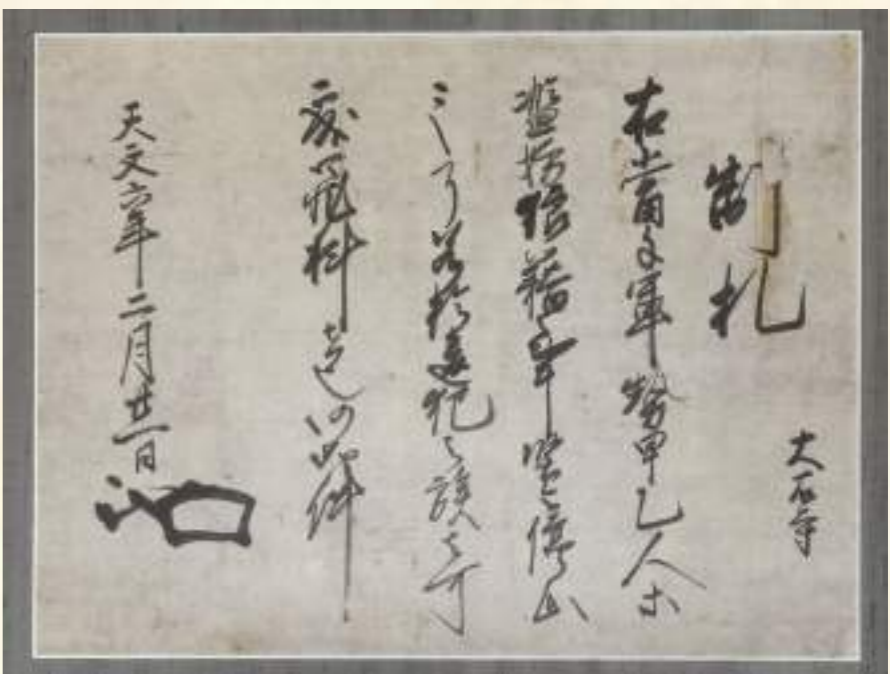 大石寺
制札
右当手軍勢甲乙人等
濫妨狼藉之事堅令停止
之了若於違犯之族者可
処罪科者也仍如件
天文六年二月廿一日